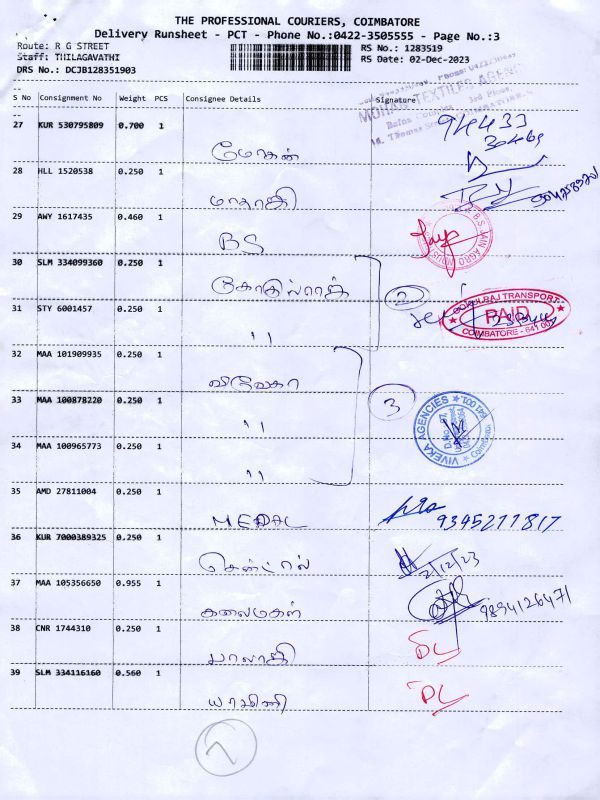 THE PROFESSIONAL COURIERS, COIMBATORE
Delivery Runsheet - PCT - Phone No.:0422-3505555 - Page No.:3
Route: R G STREET RS No.: 1283519
Staff: THILAGAVATHI RS Date: 02-Dec-2023
DRS No.: DCJB128351903
S No Consignment No Weight PCS Consignee Details Signature
MOHAN TEXTILES AGENCY
27 KUR 530795809 0.700 1
94433
30469
மோகன்
28 HLL 1520538 0.250 1
மாதாஜி
29 AWY 1617435 0.460 1
BS
30 SLM 334099360 0.250 1
கோகுல்ராஜ்
2
31 STY 6001457 0.250 1
GOKULRAJ TRANSPORT
PAID
COIMBATORE - 641 001
"
32 MAA 101909935 0.250 1
விவேகா
33 MAA 100878220 0.250 1
3
VIVEKA AGENCIES
Coimbatore 641 001.
"
34 MAA 100965773 0.250 1
"
35 AMD 27811004 0.250 1
MEDAL
9345211817
36 KUR 7000389325 0.250 1
சென்ட்ரல்
2/12/23
37 MAA 105356650 0.955 1
கலைமகள்
9894126471
38 CNR 1744310 0.250 1
பாலாஜி
DL
39 SLM 334116160 0.560 1
யாமினி
DL
7